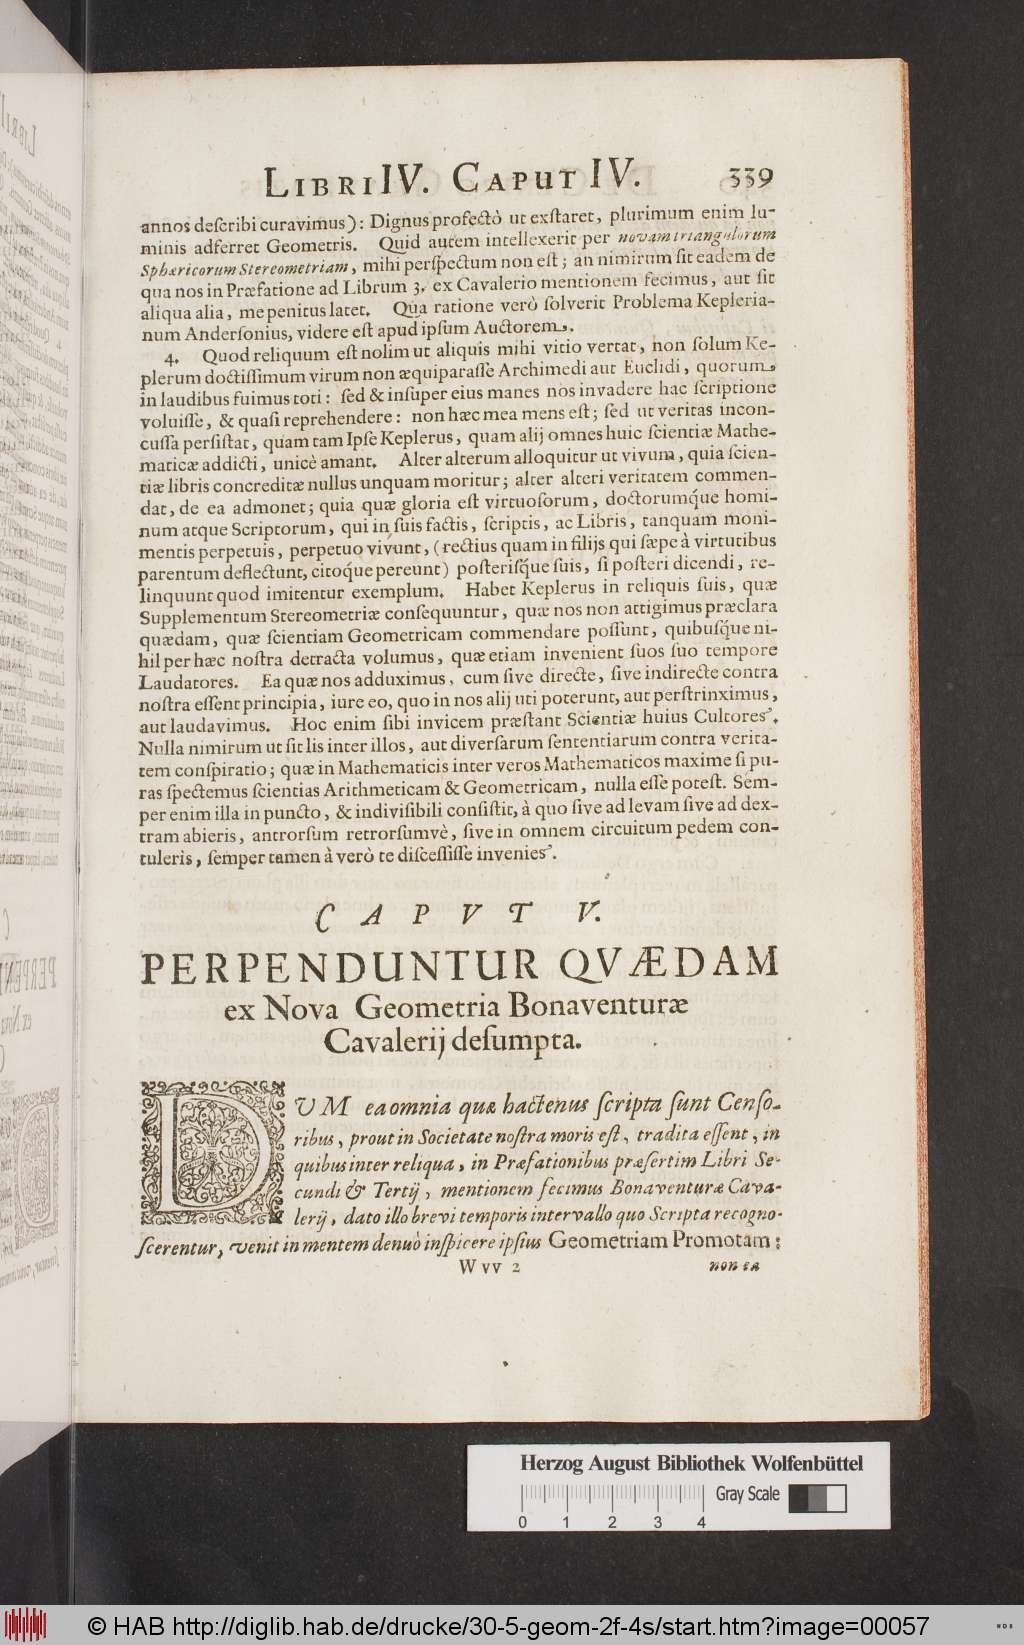 LIBRI IV. CAPUT IV. 339
annos describi curavimus): Dignus profectò ut exstaret, plurimum enim lu-
minis adferret Geometris. Quid autem intellexerit per novam triangulorum
Sphæricorum Stereometriam, mihi perspectum non est; an nimirum sit eadem de
qua nos in Præfatione ad Librum 3. ex Cavalerio mentionem fecimus, aut sit
aliqua alia, me penitus latet. Qua ratione verò solverit Problema Kepleria-
num Andersonius, videre est apud ipsum Auctorem.
4. Quod reliquum est nolim ut aliquis mihi vitio vertat, non solum Ke-
plerum doctissimum virum non æquiparasse Archimedi aut Euclidi, quorum
in laudibus fuimus toti: sed & insuper eius manes nos invadere hac scriptione
voluisse, & quasi reprehendere: non hæc mea mens est; sed ut veritas incon-
cussa persistat, quam tam Ipse Keplerus, quam alij omnes huic scientiæ Mathe-
maticæ addicti, unicè amant. Alter alterum alloquitur ut vivum, quia scien-
tiæ libris concreditæ nullus unquam moritur; alter alteri veritatem commen-
dat, de ea admonet; quia quæ gloria est virtuosorum, doctorumq́ue homi-
num atque Scriptorum, qui in suis factis, scriptis, ac Libris, tanquam moni-
mentis perpetuis, perpetuo vivunt, (rectius quam in filijs qui sæpe à virtutibus
parentum deflectunt, citoq́ue pereunt) posterisq́ue suis, si posteri dicendi, re-
linquunt quod imitentur exemplum. Habet Keplerus in reliquis suis, quæ
Supplementum Stereometriæ consequuntur, quæ nos non attigimus præclara
quædam, quæ scientiam Geometricam commendare possunt, quibusq́ue ni-
hil per hæc nostra detracta volumus, quæ etiam invenient suos suo tempore
Laudatores. Ea quæ nos adduximus, cum sive directe, sive indirecte contra
nostra essent principia, iure eo, quo in nos alij uti poterunt, aut perstrinximus,
aut laudavimus. Hoc enim sibi invicem præstant Scientiæ huius Cultores.
Nulla nimirum ut sit lis inter illos, aut diversarum sententiarum contra verita-
tem conspiratio; quæ in Mathematicis inter veros Mathematicos maxime si pu-
ras spectemus scientias Arithmeticam & Geometricam, nulla esse potest. Sem-
per enim illa in puncto, & indivisibili consistit, à quo sive ad levam sive ad dex-
tram abieris, antrorsum retrorsumvè, sive in omnem circuitum pedem con-
tuleris, semper tamen à verò te discessisse invenies.
CAPVT V.
PERPENDUNTUR QVÆDAM
ex Nova Geometria Bonaventuræ
Cavalerij desumpta.
DUM ea omnia quæ hactenus scripta sunt Censo-
ribus, prout in Societate nostra moris est, tradita essent, in
quibus inter reliqua, in Præfationibus præsertim Libri Se-
cundi & Tertij, mentionem fecimus Bonaventuræ Cava-
lerij, dato illo brevi temporis intervallo quo Scripta recogno-
scerentur, venit in mentem denuò inspicere ipsius Geometriam Promotam:
Wvv 2 non ea
Herzog August Bibliothek Wolfenbüttel
Gray Scale
0 1 2 3 4
© HAB http://diglib.hab.de/drucke/30-5-geom-2f-4s/start.htm?image=00057